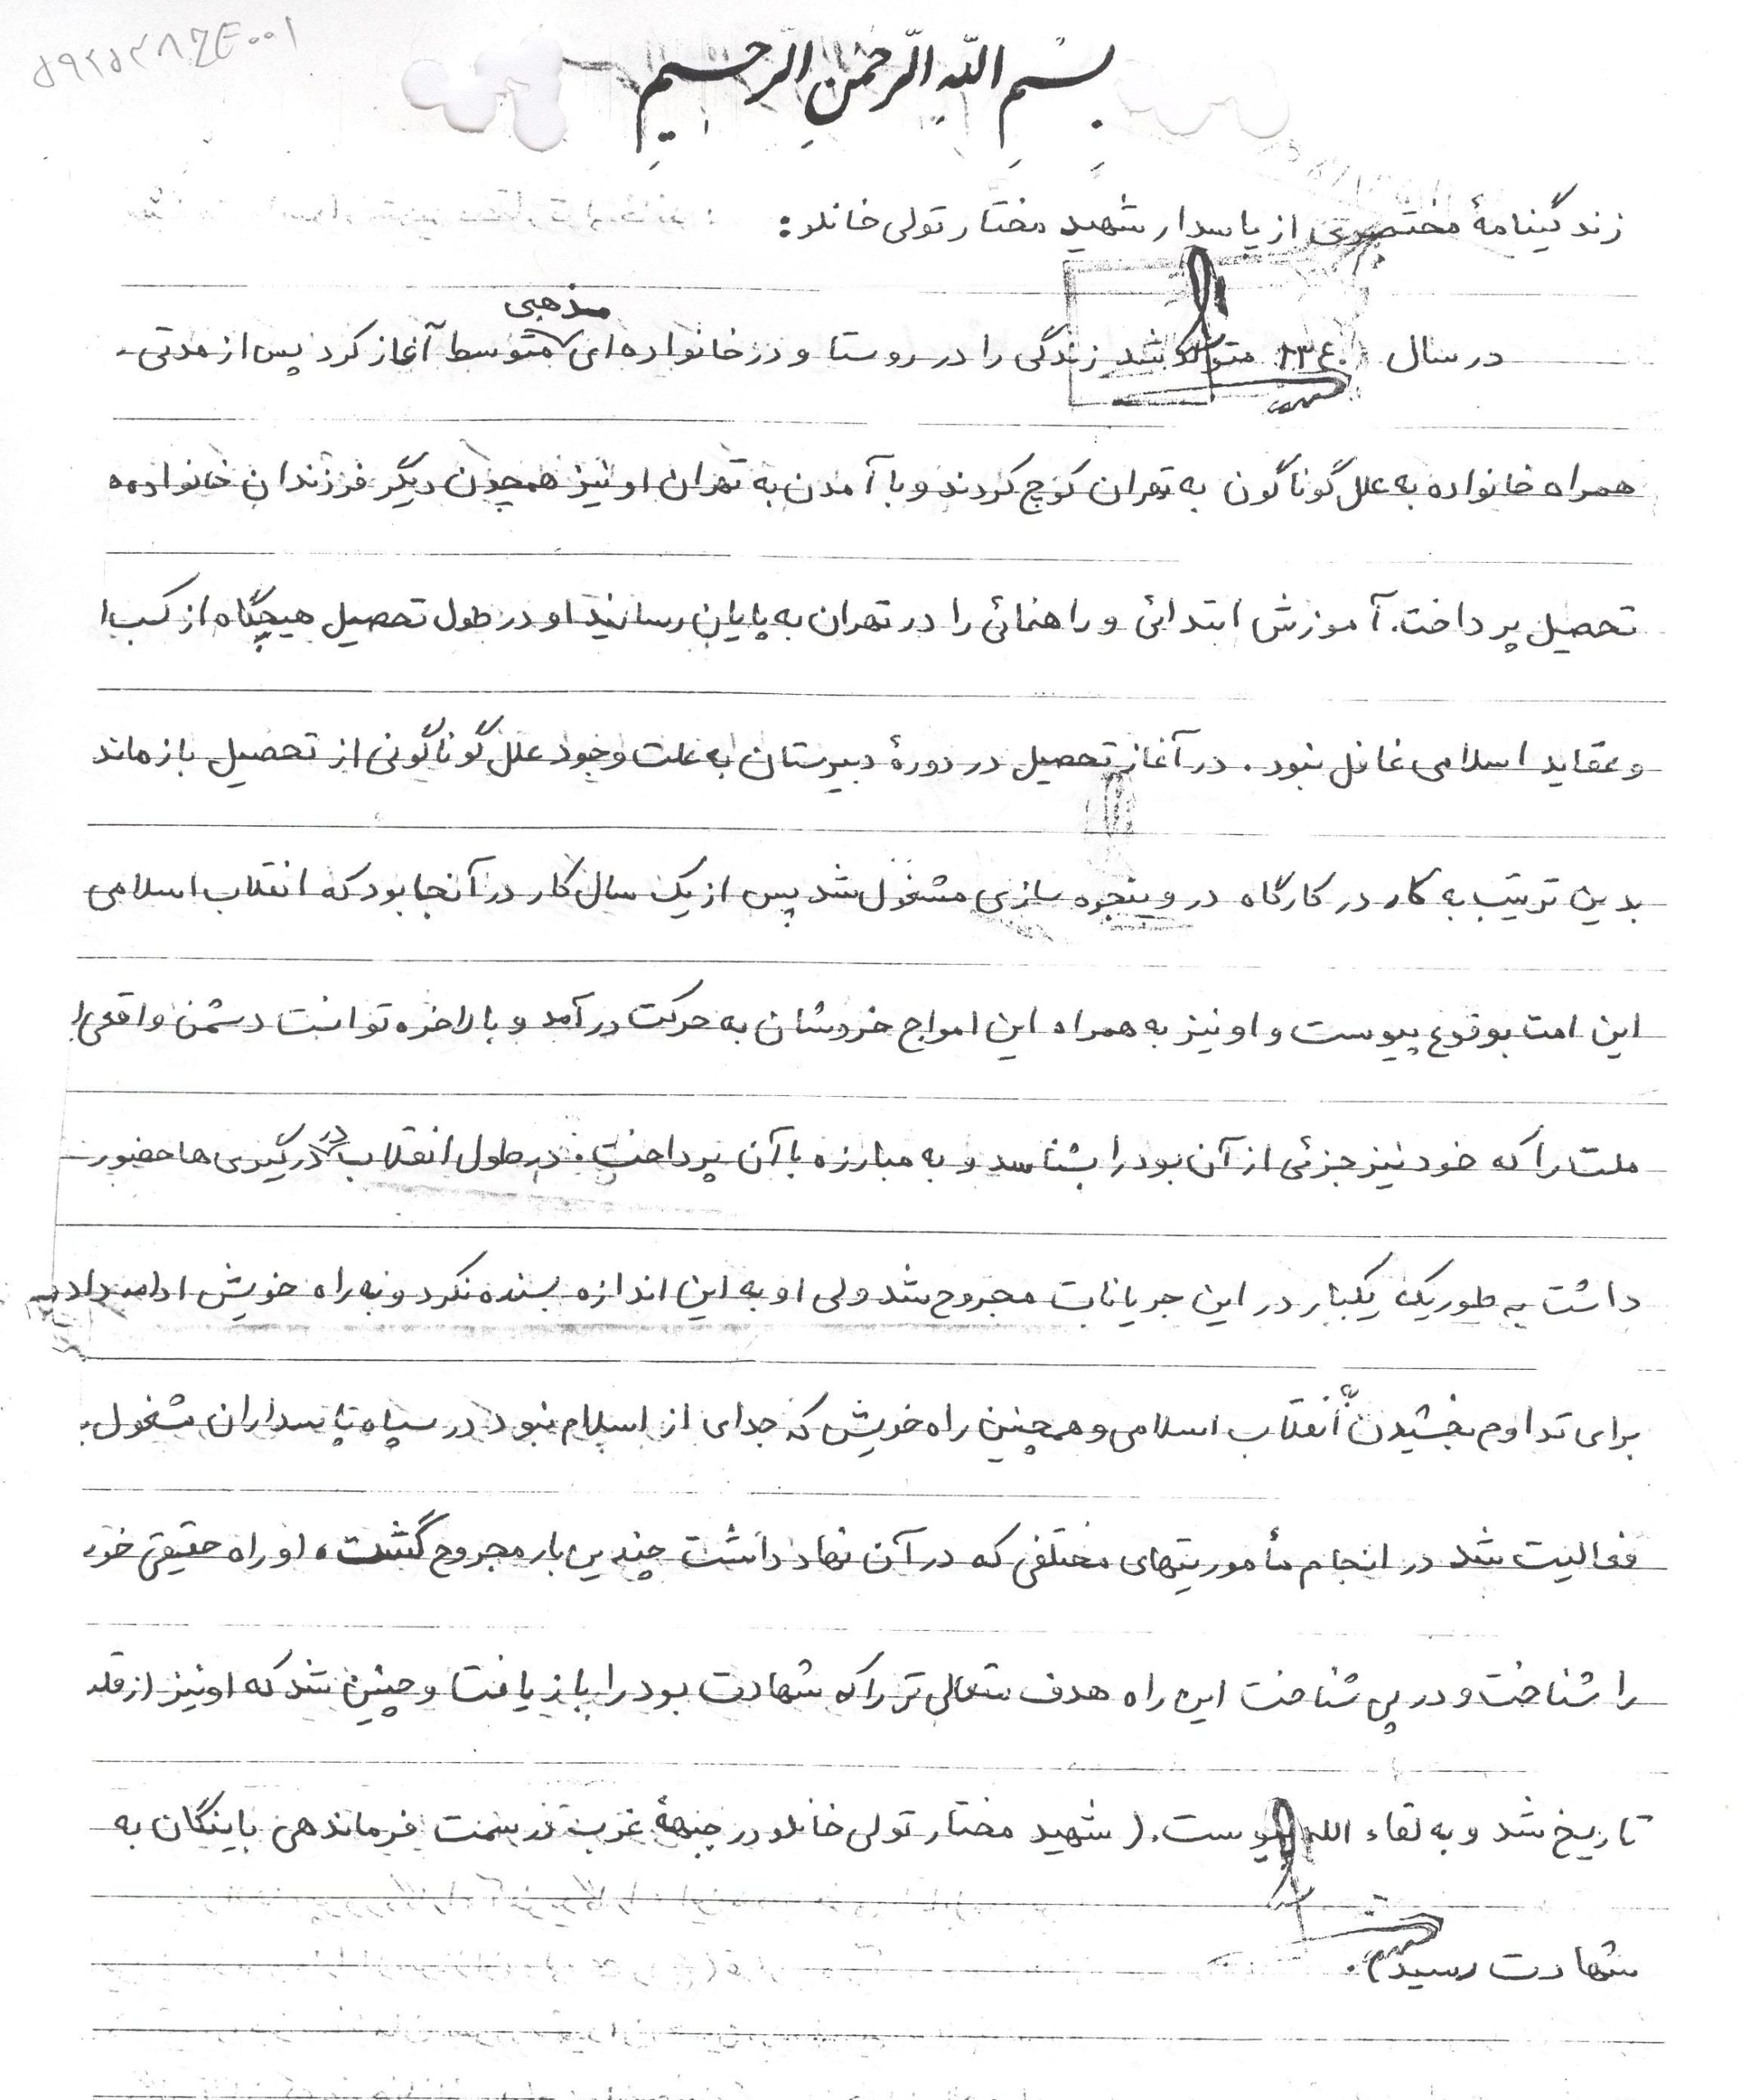 بسم الله الرحمن الرحیم
زندگینامهٔ مختصری از پاسدار شهید مختار تولی خانلو:
مذهبی
در سال ۱۳۴۰ متولد شد زندگی را در روستا و در خانواده‌ای متوسط آغاز کرد پس از مدتی
همراه خانواده به علل گوناگون به تهران کوچ کردند و با آمدن به تهران او نیز همچون دیگر فرزندان خانواده به
تحصیل پرداخت. آموزش ابتدائی و راهنمائی را در تهران به پایان رسانید او در طول تحصیل هیچگاه از کسب
و عقاید اسلامی غافل نبود. در آغاز تحصیل در دورهٔ دبیرستان به علت وجود علل گوناگونی از تحصیل بازماند
بدین ترتیب به کار در کارگاه در و پنجره سازی مشغول شد پس از یک سال کار در آنجا بود که انقلاب اسلامی
این امت بوقوع پیوست و او نیز به همراه این امواج خروشان به حرکت درآمد و بالاخره توانست دشمن واقعی
ملت را که خود نیز جزئی از آن بود را بشناسد و به مبارزه با آن پرداخت. در طول انقلاب در درگیری ها حضور
داشت به طوریکه یکبار در این جریانات مجروح شد ولی او به این اندازه بسنده نکرد و به راه خویش ادامه داد و
برای تداوم بخشیدن به انقلاب اسلامی و همچنین راه خویش که جدای از اسلام نبود در سپاه پاسداران مشغول
فعالیت شد در انجام مأموریتهای مختلفی که در آن نهاد داشت چندین بار مجروح گشت. او راه حقیقی خود
را شناخت و در پی شناخت این راه هدف متعالی تر را که شهادت بود را باز یافت و چنین شد که او نیز از
تاریخ شد و به لقاء الله پیوست. (شهید مختار تولی خانلو در جبههٔ غرب در سمت فرماندهی باینگان به
شهادت رسید).